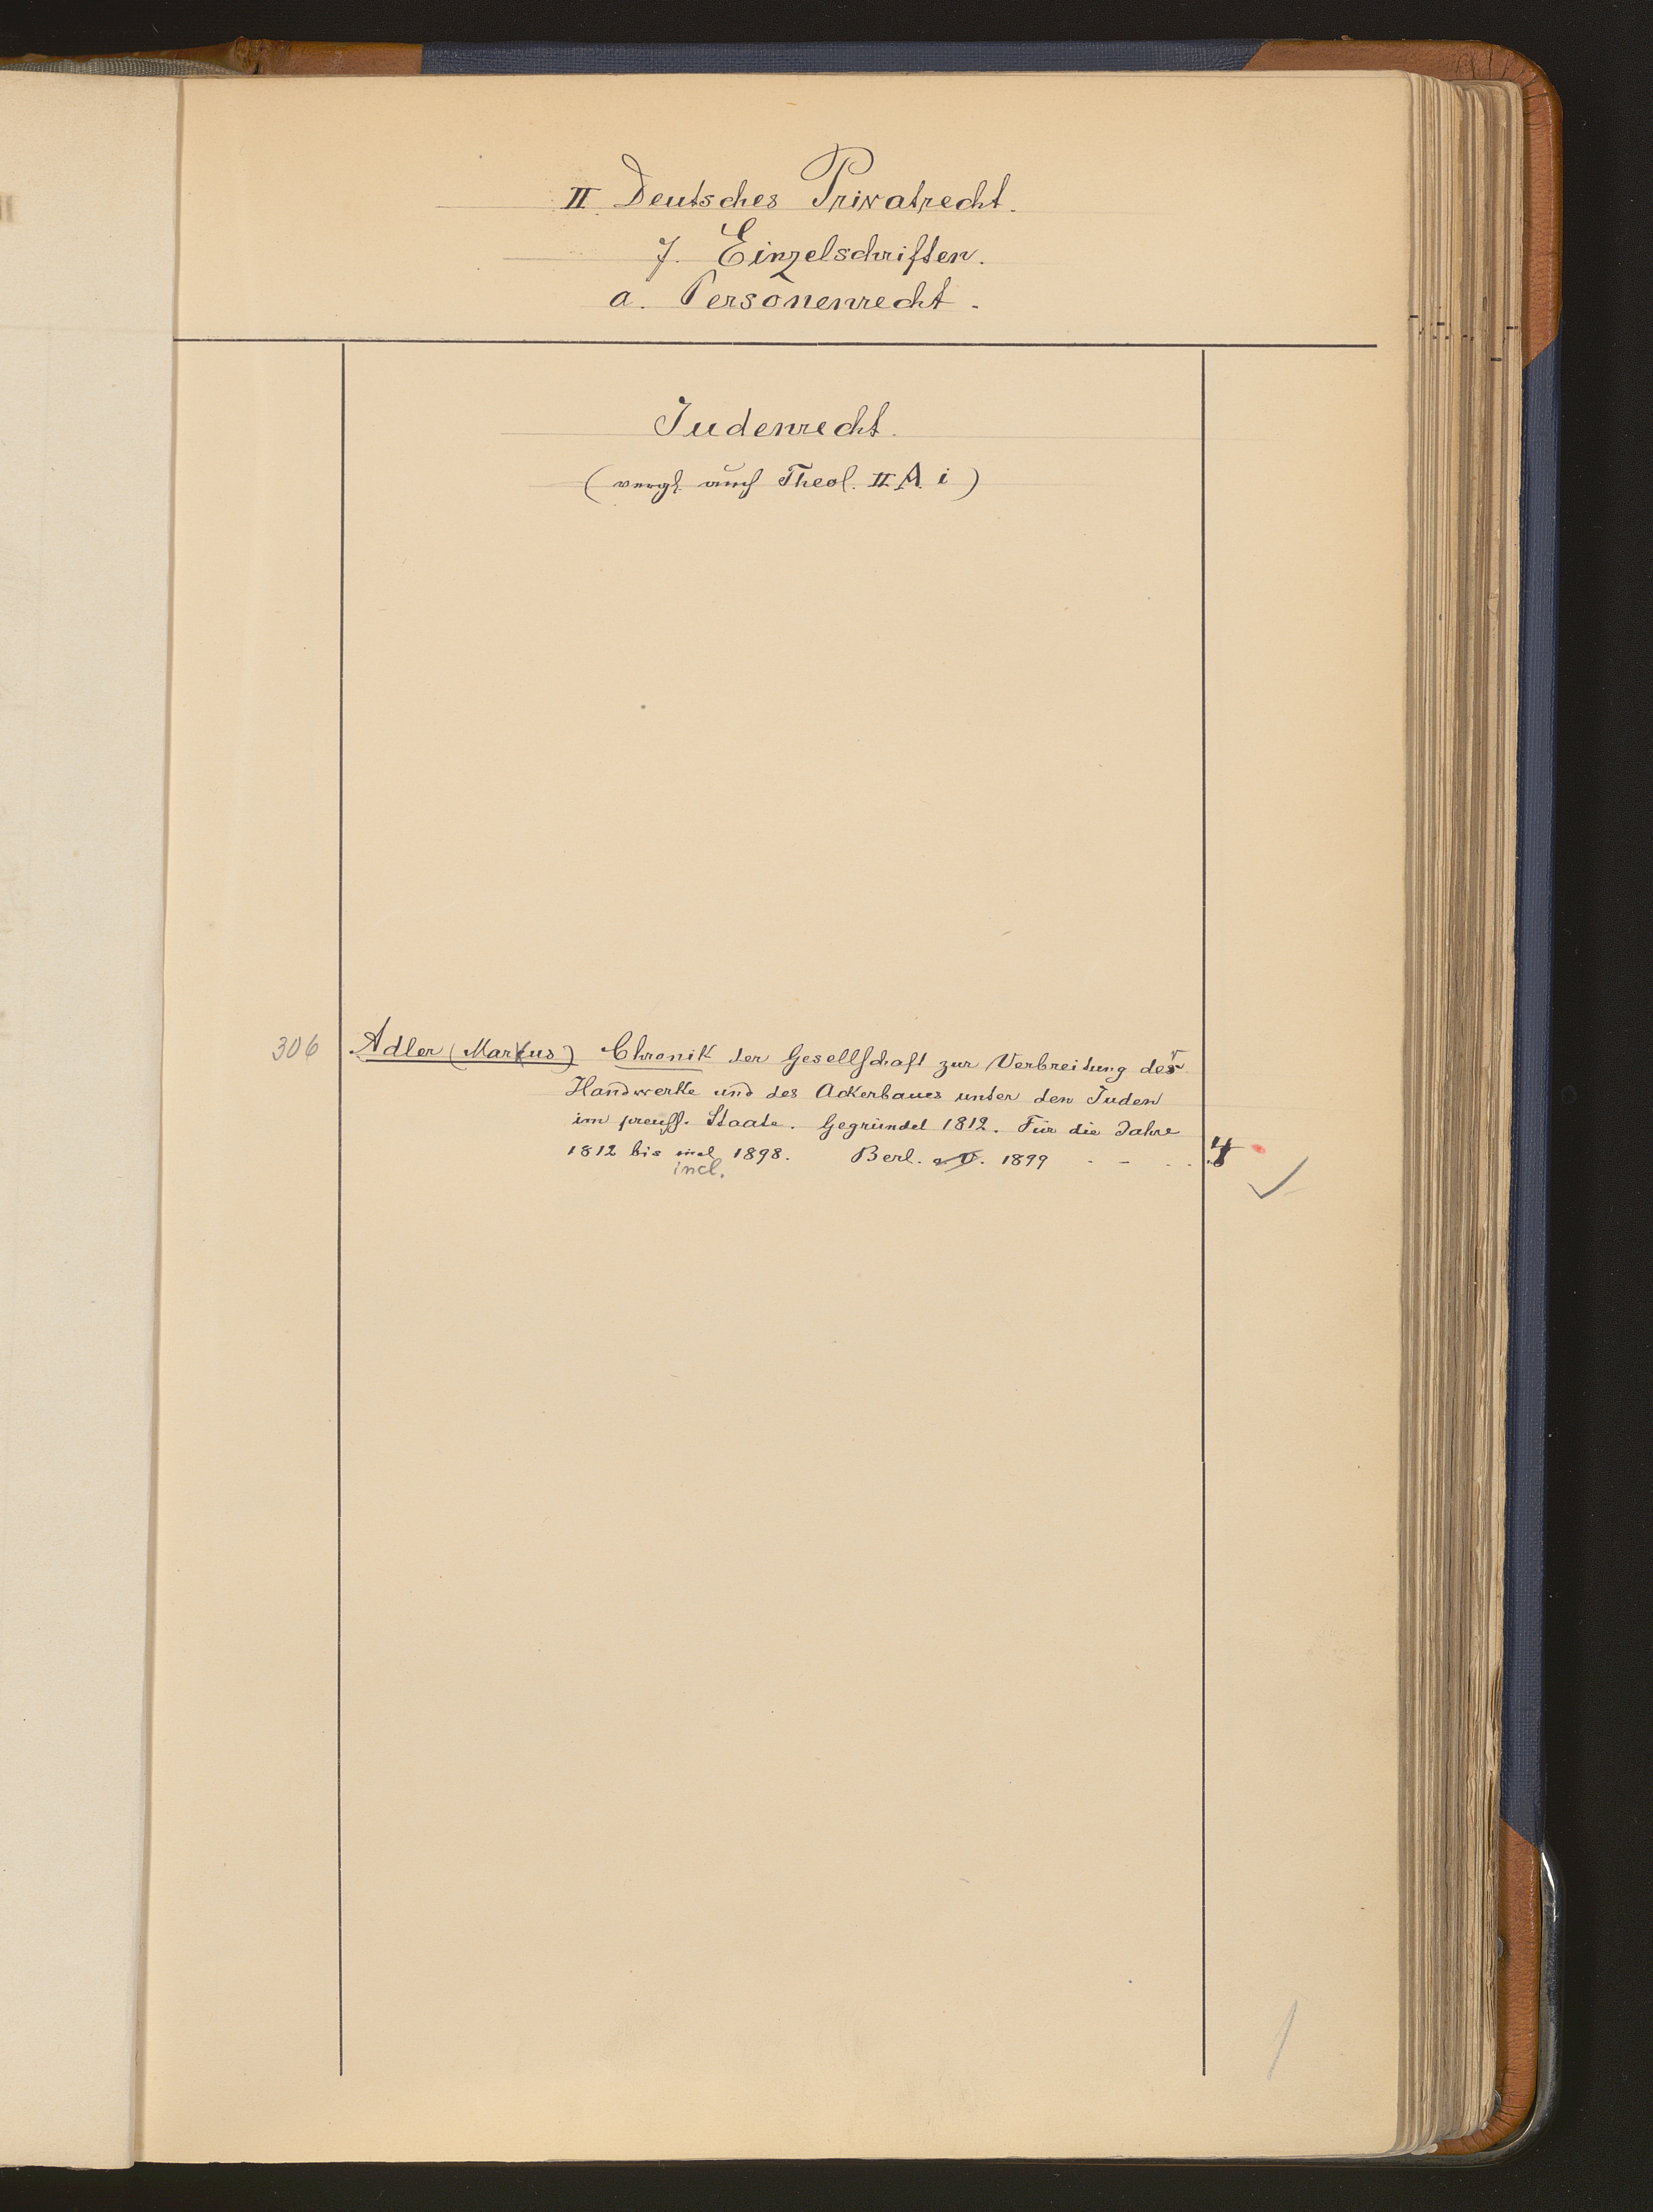 II. Deutsches Privatrecht.
7. Einzelschriften.
a. Personenrecht.
Judenrecht.
(vergl. auch Theol. II A i)
306 Adler (Markus) Chronik der Gesellschaft zur Verbreitung der
Handwerke und des Ackerbaues unter den Juden
im preuss. Staate. Gegründet 1812. Für die Jahre
1812 bis incl 1898. Berl. 1899 - - . . 4
incl.